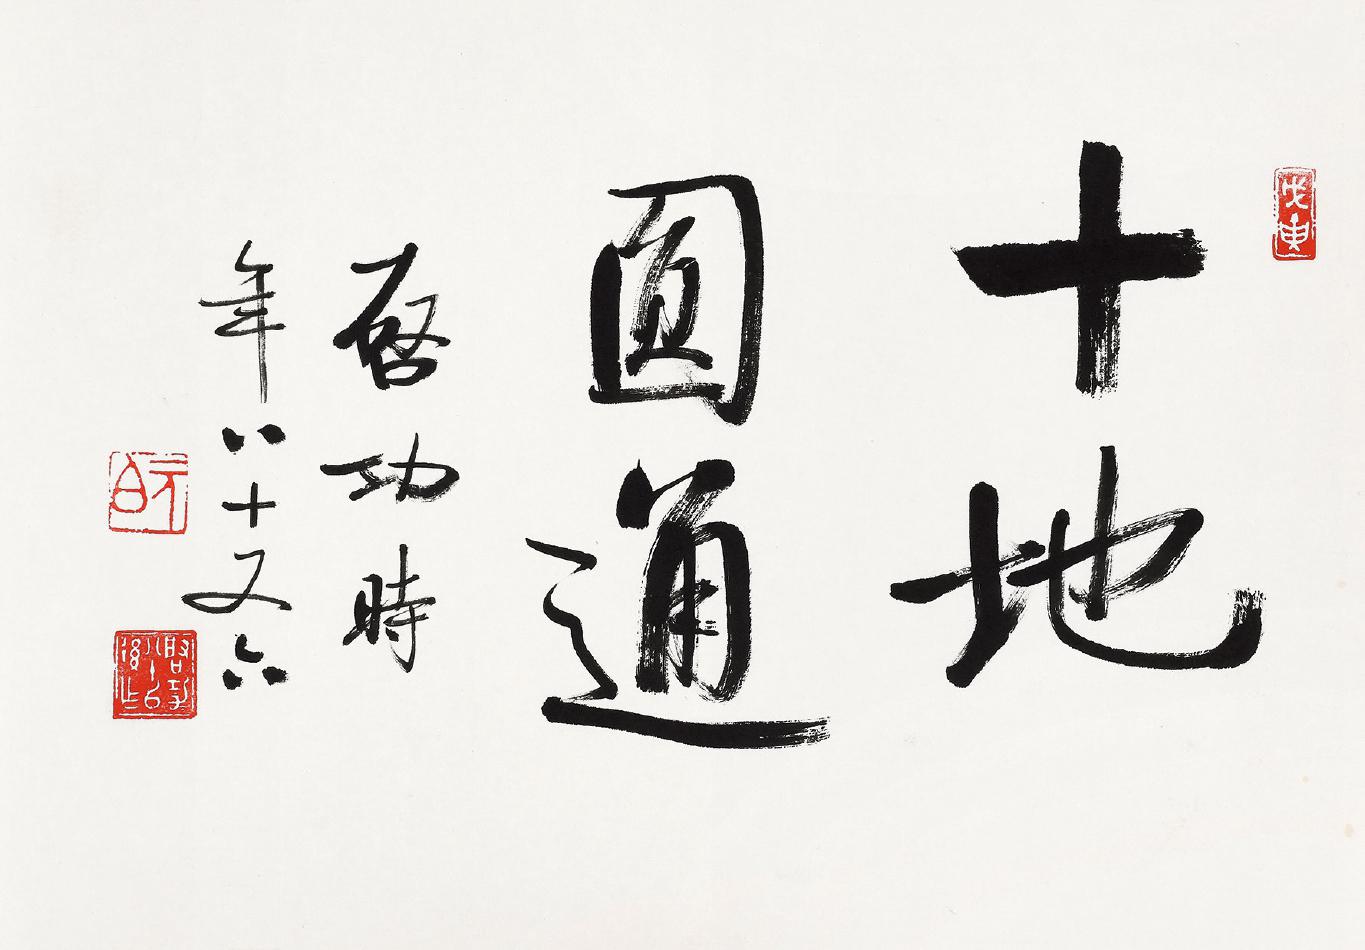 十地
圓通
啓功時
年八十又六